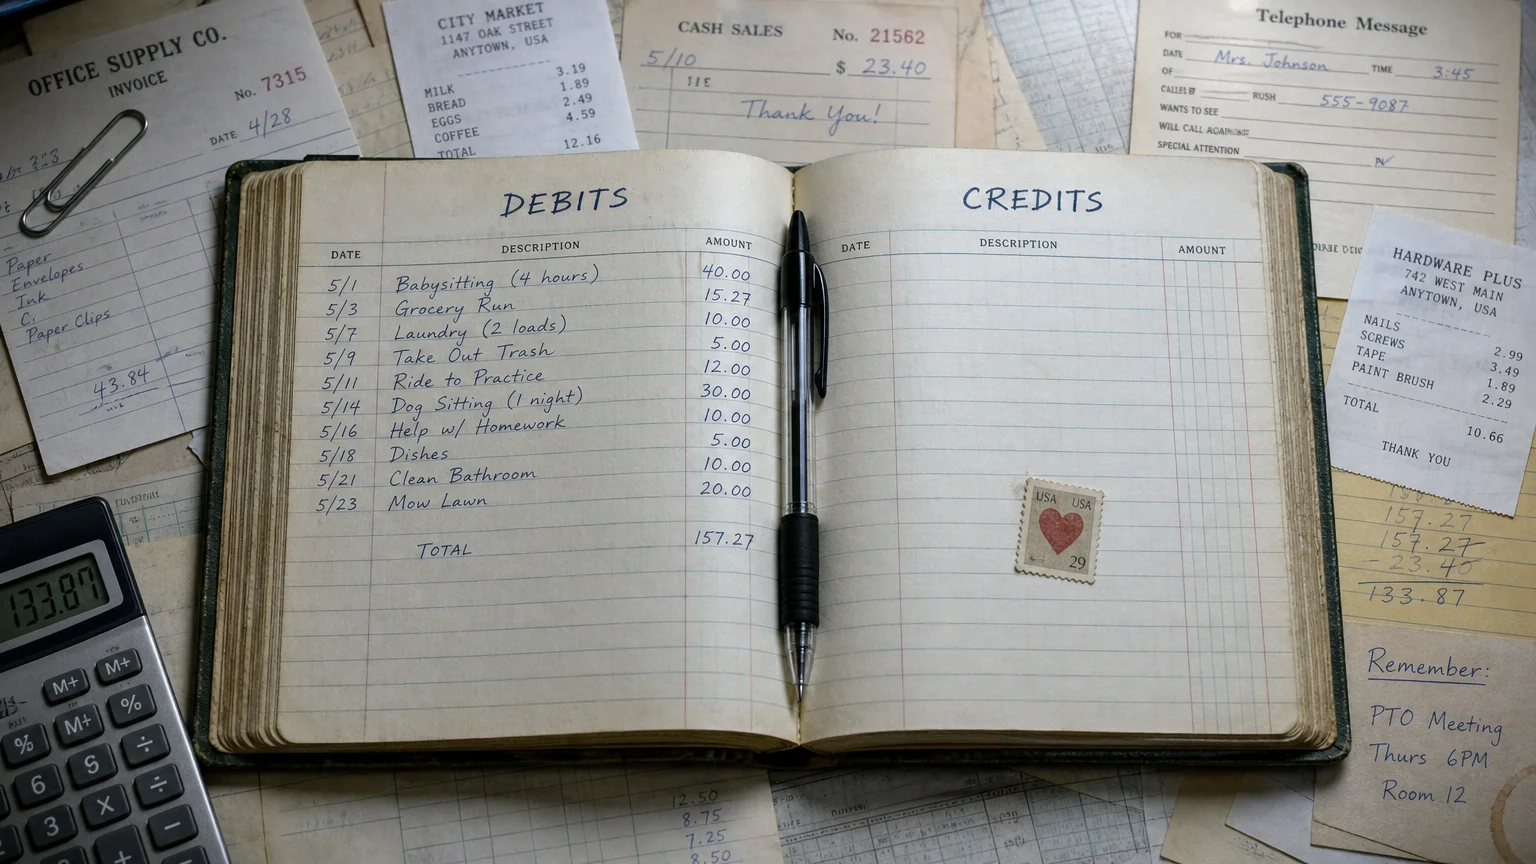 OFFICE SUPPLY CO.
INVOICE
No. 7315
DATE 4/28
Paper
Envelopes
Ink
C.
Paper Clips
43.84
CITY MARKET
1147 OAK STREET
ANYTOWN, USA
3.19
MILK 1.89
BREAD 2.49
EGGS 4.59
COFFEE
TOTAL 12.16
CASH SALES No. 21562
5/10 $ 23.40
Thank You!
Telephone Message
FOR
DATE Mrs. Johnson TIME 3:45
OF
RUSH 555-9087
WANTS TO SEE
WILL CALL
SPECIAL ATTENTION
DEBITS
DATE DESCRIPTION AMOUNT
5/1 Babysitting (4 hours) 40.00
5/3 Grocery Run 15.27
5/7 Laundry (2 loads) 10.00
5/9 Take Out Trash 5.00
5/11 Ride to Practice 12.00
5/14 Dog Sitting (1 night) 30.00
5/16 Help w/ Homework 10.00
5/18 Dishes 5.00
5/21 Clean Bathroom 10.00
5/23 Mow Lawn 20.00
TOTAL 157.27
CREDITS
DATE DESCRIPTION AMOUNT
USA USA
29
HARDWARE PLUS
742 WEST MAIN
ANYTOWN, USA
NAILS 2.99
SCREWS 3.49
TAPE 1.89
PAINT BRUSH 2.29
TOTAL 10.66
THANK YOU
157.27
157.27
- 23.40
133.87
Remember:
PTO Meeting
Thurs 6PM
Room 12
133.87
M+ M+
% M+ %
6 9 ÷ ÷
3 X ÷
+ −
12.50
8.75
7.25
8.50